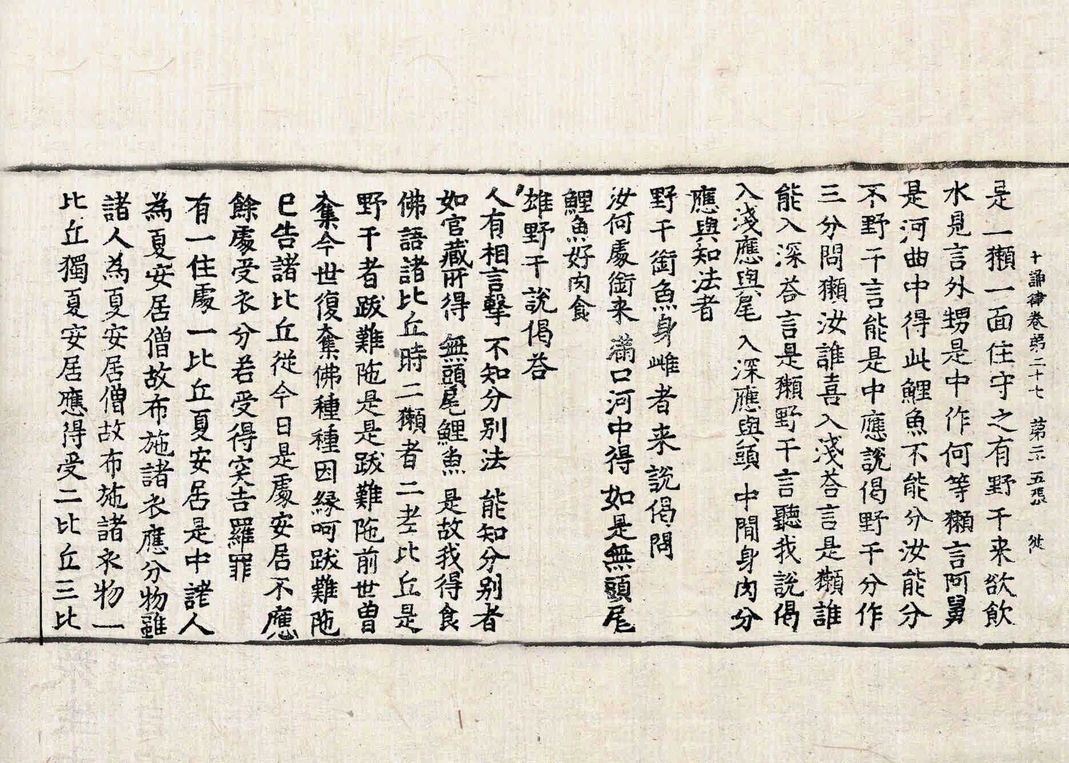 十誦律卷第二十七 第二五張 従
是一獺一面住守之有野干来欲飲
水見言外甥是中作何等獺言阿舅
是河曲中得此鯉魚不能分汝能分
不野干言能是中應說偈野干分作
三分問獺汝誰喜入淺荅言是獺誰
能入深荅言是獺野干言聽我說偈
入淺應與尾 入深應與頭 中閒身肉分
應與知法者
野干銜魚身雌者来說偈問
汝何處銜来 滿口河中得 如是無頭尾
鯉魚好肉食
雄野干說偈荅
人有相言擊 不知分別法 能知分別者
如官藏所得 無頭尾鯉魚 是故我得食
佛語諸比丘時二獺者二老比丘是
野干者跋難陁是是跋難陁前世曾
奪今世復奪佛種種因緣呵跋難陁
已告諸比丘從今日是處安居不應
餘處受衣分若受得突吉羅罪
有一住處一比丘夏安居是中諸人
為夏安居僧故布施諸衣應分物雖
諸人為夏安居僧故布施諸衣物一
比丘獨夏安居應得受二比丘三比